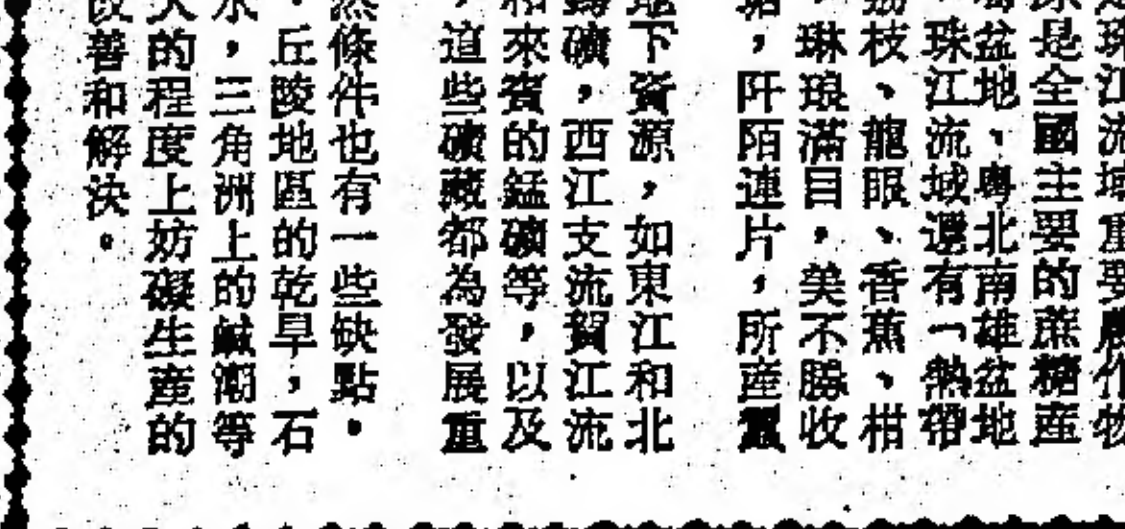 珠江流域重要農作物
原是全國主要的蔗糖產
盆地、粵北南雄盆地
珠江流域還有「熱帶
荔枝、龍眼、香蕉、柑
琳琅滿目，美不勝收
，阡陌連片，所産蠶
地下資源，如東江和北
礦，西江支流賀江流
和來賓的錳礦等，以及
，這些礦藏都為發展重
然條件也有一些缺點。
，丘陵地區的乾旱，石
水，三角洲上的鹹潮等
大的程度上妨礙生産的
改善和解決。